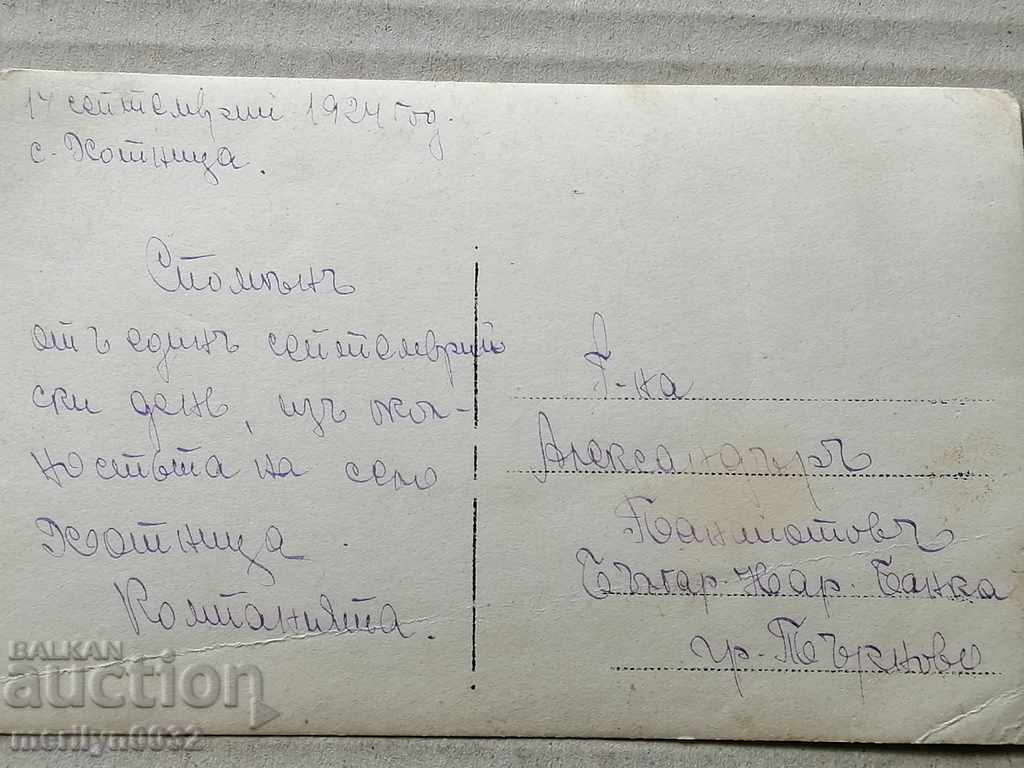 14 септемврий 1924 год.
с. Хотница.
Споменъ
отъ единъ септемврий
ски день, изъ
ностьта на село
Хотница.
Компанията.
Г-на
Александъръ
Българ. Нар. Банка
гр. Търново
BALKAN
auction
merilyn0032